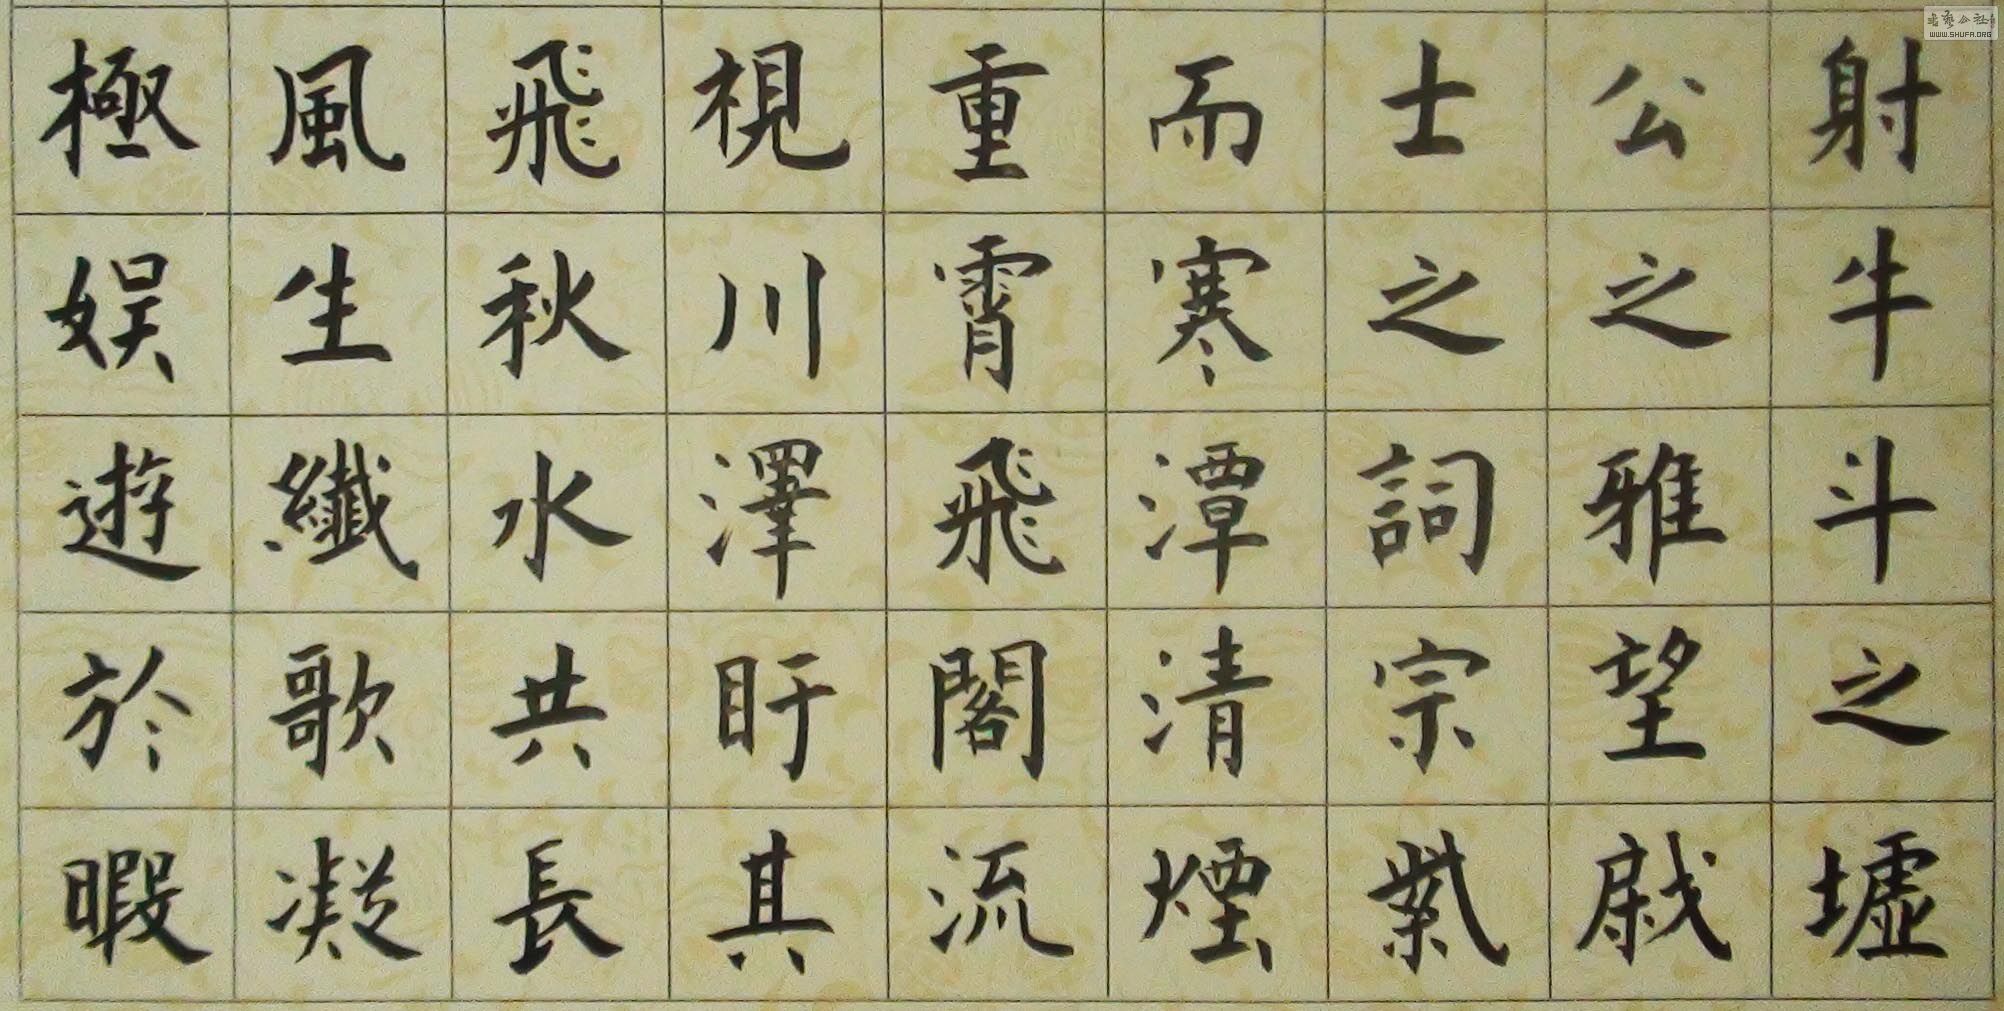 射牛斗之墟
公之雅望棨戟
士之詞宗紫
而寒潭清煙
重霄飛閣流
視川澤盱其
飛秋水共長
風生纖歌凝
極娛遊於暇
書藝公社
WWW.SHUFA.ORG